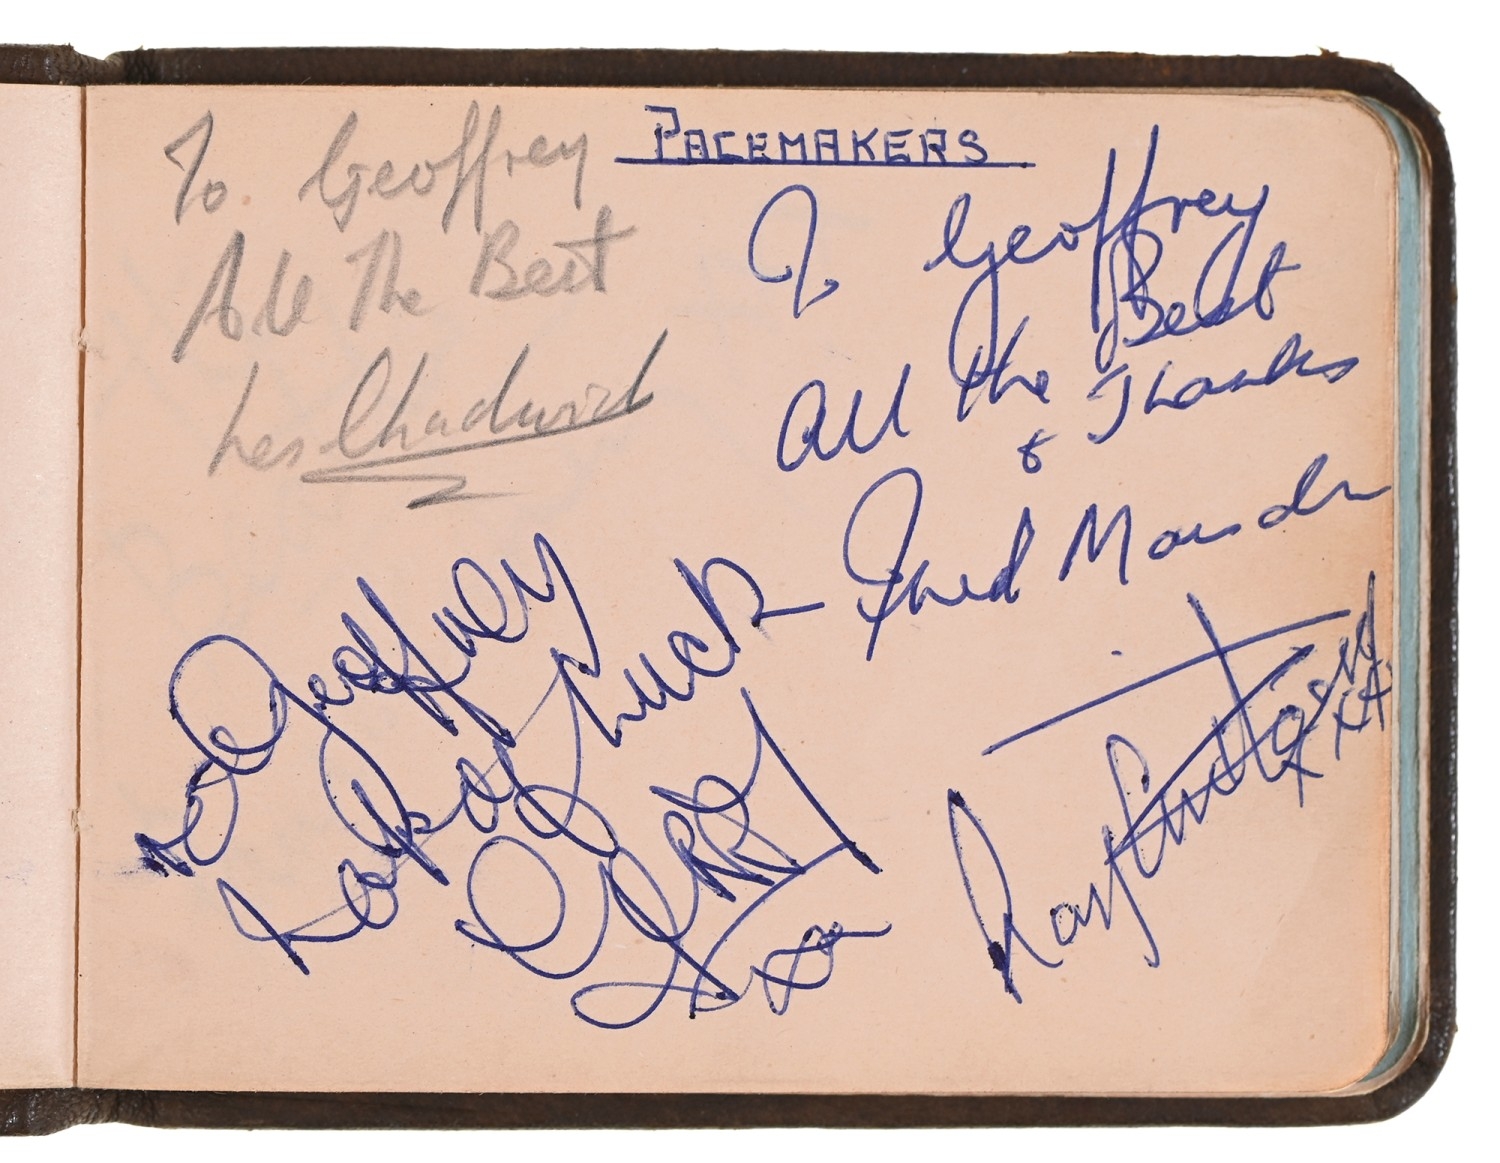 PACEMAKERS
To. Geoffrey
All The Best
Les Chadwick
To Geoffrey
All the Best
& Thanks
Fred Marsden
To Geoffrey
Lots of Luck
GERRY
xx